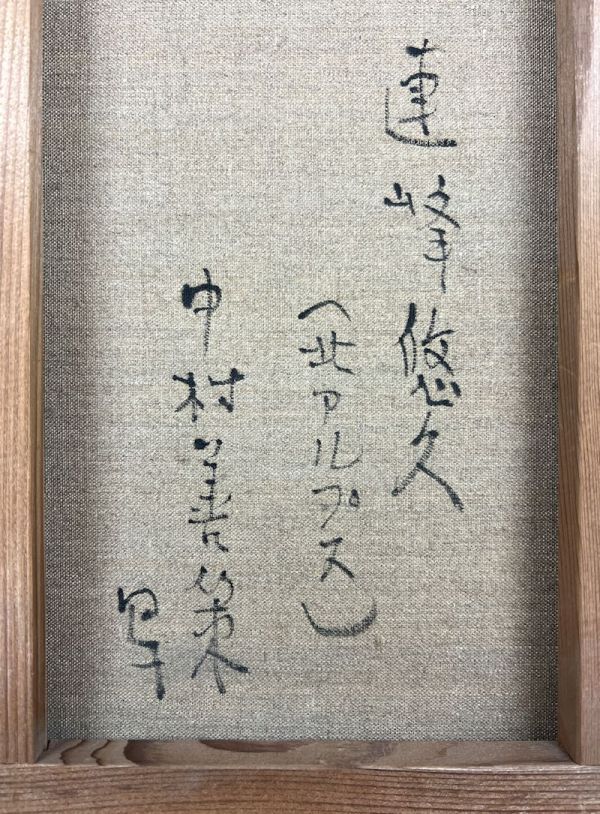 連峰悠久
(北アルプス)
中村善策